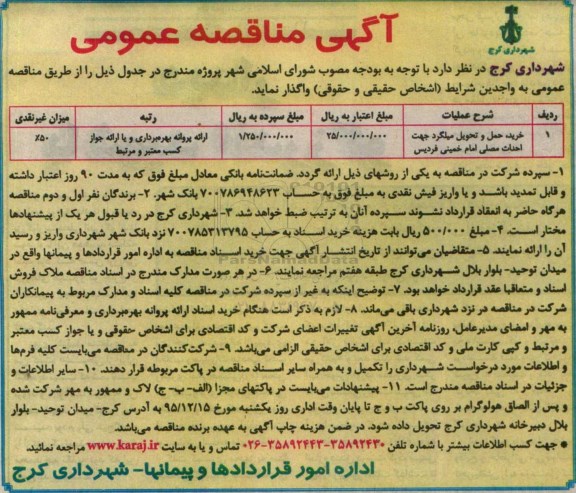 آگهی مناقصه عمومی
شهرداری کرج
شهرداری کرج در نظر دارد با توجه به بودجه مصوب شورای اسلامی شهر پروژه مندرج در جدول ذیل را از طریق مناقصه
عمومی به واجدین شرایط (اشخاص حقیقی و حقوقی) واگذار نماید.
ردیف شرح عملیات مبلغ اعتبار به ریال مبلغ سپرده به ریال رتبه میزان غیرنقدی
۱ خرید، حمل و تحویل میلگرد جهت ۲۵/۰۰۰/۰۰۰/۰۰۰ ۱/۲۵۰/۰۰۰/۰۰۰ ارائه پروانه بهره‌برداری و یا ارائه جواز ۵۰٪
احداث مصلی امام خمینی فردیس کسب معتبر و مرتبط
۱- سپرده شرکت در مناقصه به یکی از روشهای ذیل ارائه گردد. ضمانت‌نامه بانکی معادل مبلغ فوق که به مدت ۹۰ روز اعتبار داشته
و قابل تمدید باشد و یا واریز فیش نقدی به مبلغ فوق به حساب ۷۰۰۷۸۶۹۴۸۶۲۳ بانک شهر. ۲- برندگان نفر اول و دوم مناقصه
هرگاه حاضر به انعقاد قرارداد نشوند سپرده آنان به ترتیب ضبط خواهد شد. ۳- شهرداری کرج در رد یا قبول هر یک از پیشنهادها
مختار است. ۴- مبلغ ۵۰۰/۰۰۰ ریال بابت هزینه خرید اسناد به حساب ۷۰۰۷۸۵۳۱۳۷۹۵ نزد بانک شهر شهرداری واریز و رسید
آن را ارائه نمایند. ۵- متقاضیان می‌توانند از تاریخ انتشار آگهی جهت خرید اسناد مناقصه به اداره امور قراردادها و پیمانها واقع در
میدان توحید- بلوار بلال شهرداری کرج طبقه هفتم مراجعه نمایند. ۶- در هر صورت مدارک مندرج در اسناد مناقصه ملاک فروش
اسناد و متعاقبا عقد قرارداد خواهد بود. ۷- توضیح اینکه به غیر از سپرده شرکت در مناقصه کلیه اسناد و مدارک مربوط به پیمانکاران
شرکت در مناقصه در نزد شهرداری باقی می‌ماند. ۸- لازم به ذکر است هنگام خرید اسناد ارائه پروانه بهره‌برداری و معرفی‌نامه ممهور
به مهر و امضای مدیرعامل، روزنامه آخرین آگهی تغییرات اعضای شرکت و کد اقتصادی برای اشخاص حقوقی و یا جواز کسب معتبر
و مرتبط و کپی کارت ملی و کد اقتصادی برای اشخاص حقیقی الزامی می‌باشد. ۹- شرکت‌کنندگان در مناقصه می‌بایست کلیه فرم‌ها
و اطلاعات مورد درخواست شهرداری را تکمیل و به همراه سایر اسناد مناقصه در پاکت مربوطه قرار دهند. ۱۰- سایر اطلاعات و
جزئیات در اسناد مناقصه مندرج است. ۱۱- پیشنهادات می‌بایست در پاکتهای مجزا (الف- ب- ج) لاک و ممهور به مهر شرکت شده
و پس از الصاق هولوگرام بر روی پاکت ب و ج تا پایان وقت اداری روز یکشنبه مورخ ۹۵/۱۲/۱۵ به آدرس کرج- میدان توحید- بلوار
بلال دبیرخانه شهرداری کرج تحویل داده شود. در ضمن هزینه چاپ آگهی به عهده برنده مناقصه می‌باشد.
● جهت کسب اطلاعات بیشتر با شماره تلفن ۳۵۸۹۲۴۳۰-۳۵۸۹۲۴۴۳-۰۲۶ تماس و یا به سایت www.karaj.ir مراجعه نمائید.
اداره امور قراردادها و پیمانها- شهرداری کرج